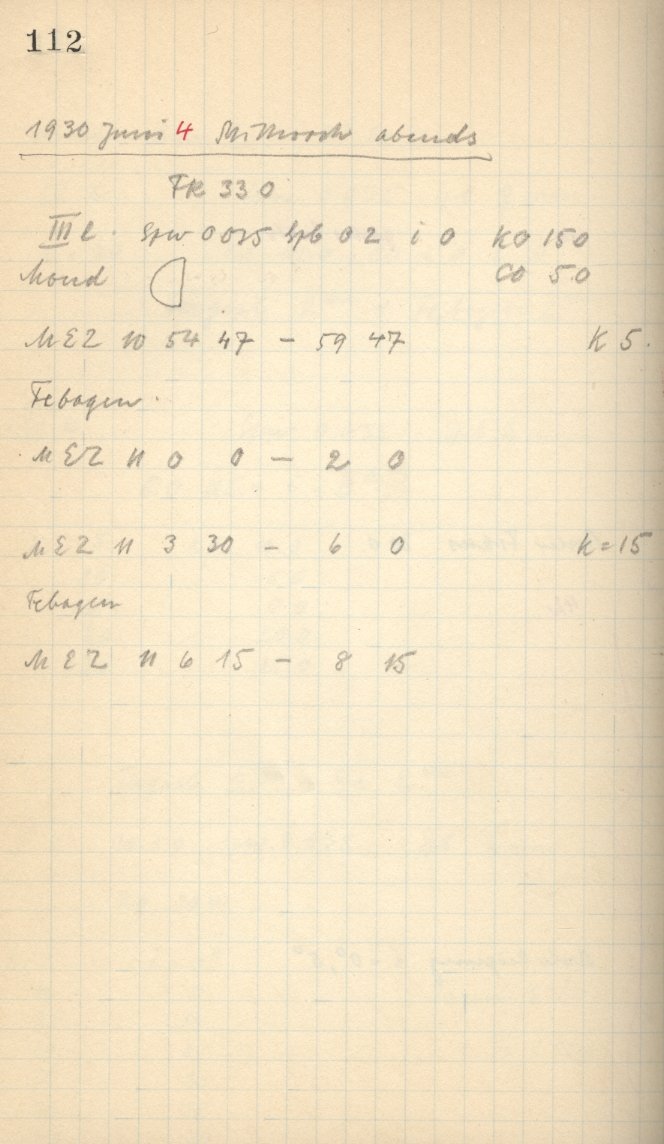 112
1930 Juni 4 Mittwoch abends
FK 330
III l. Spw 0025 Spb 02 i 0 KO 150
Mond CO 50
MEZ 10 54 47 - 59 47 K 5.
Febogen.
MEZ 11 0 0 - 2 0
MEZ 11 3 30 - 6 0 K = 15
Febogen
MEZ 11 6 15 - 8 15